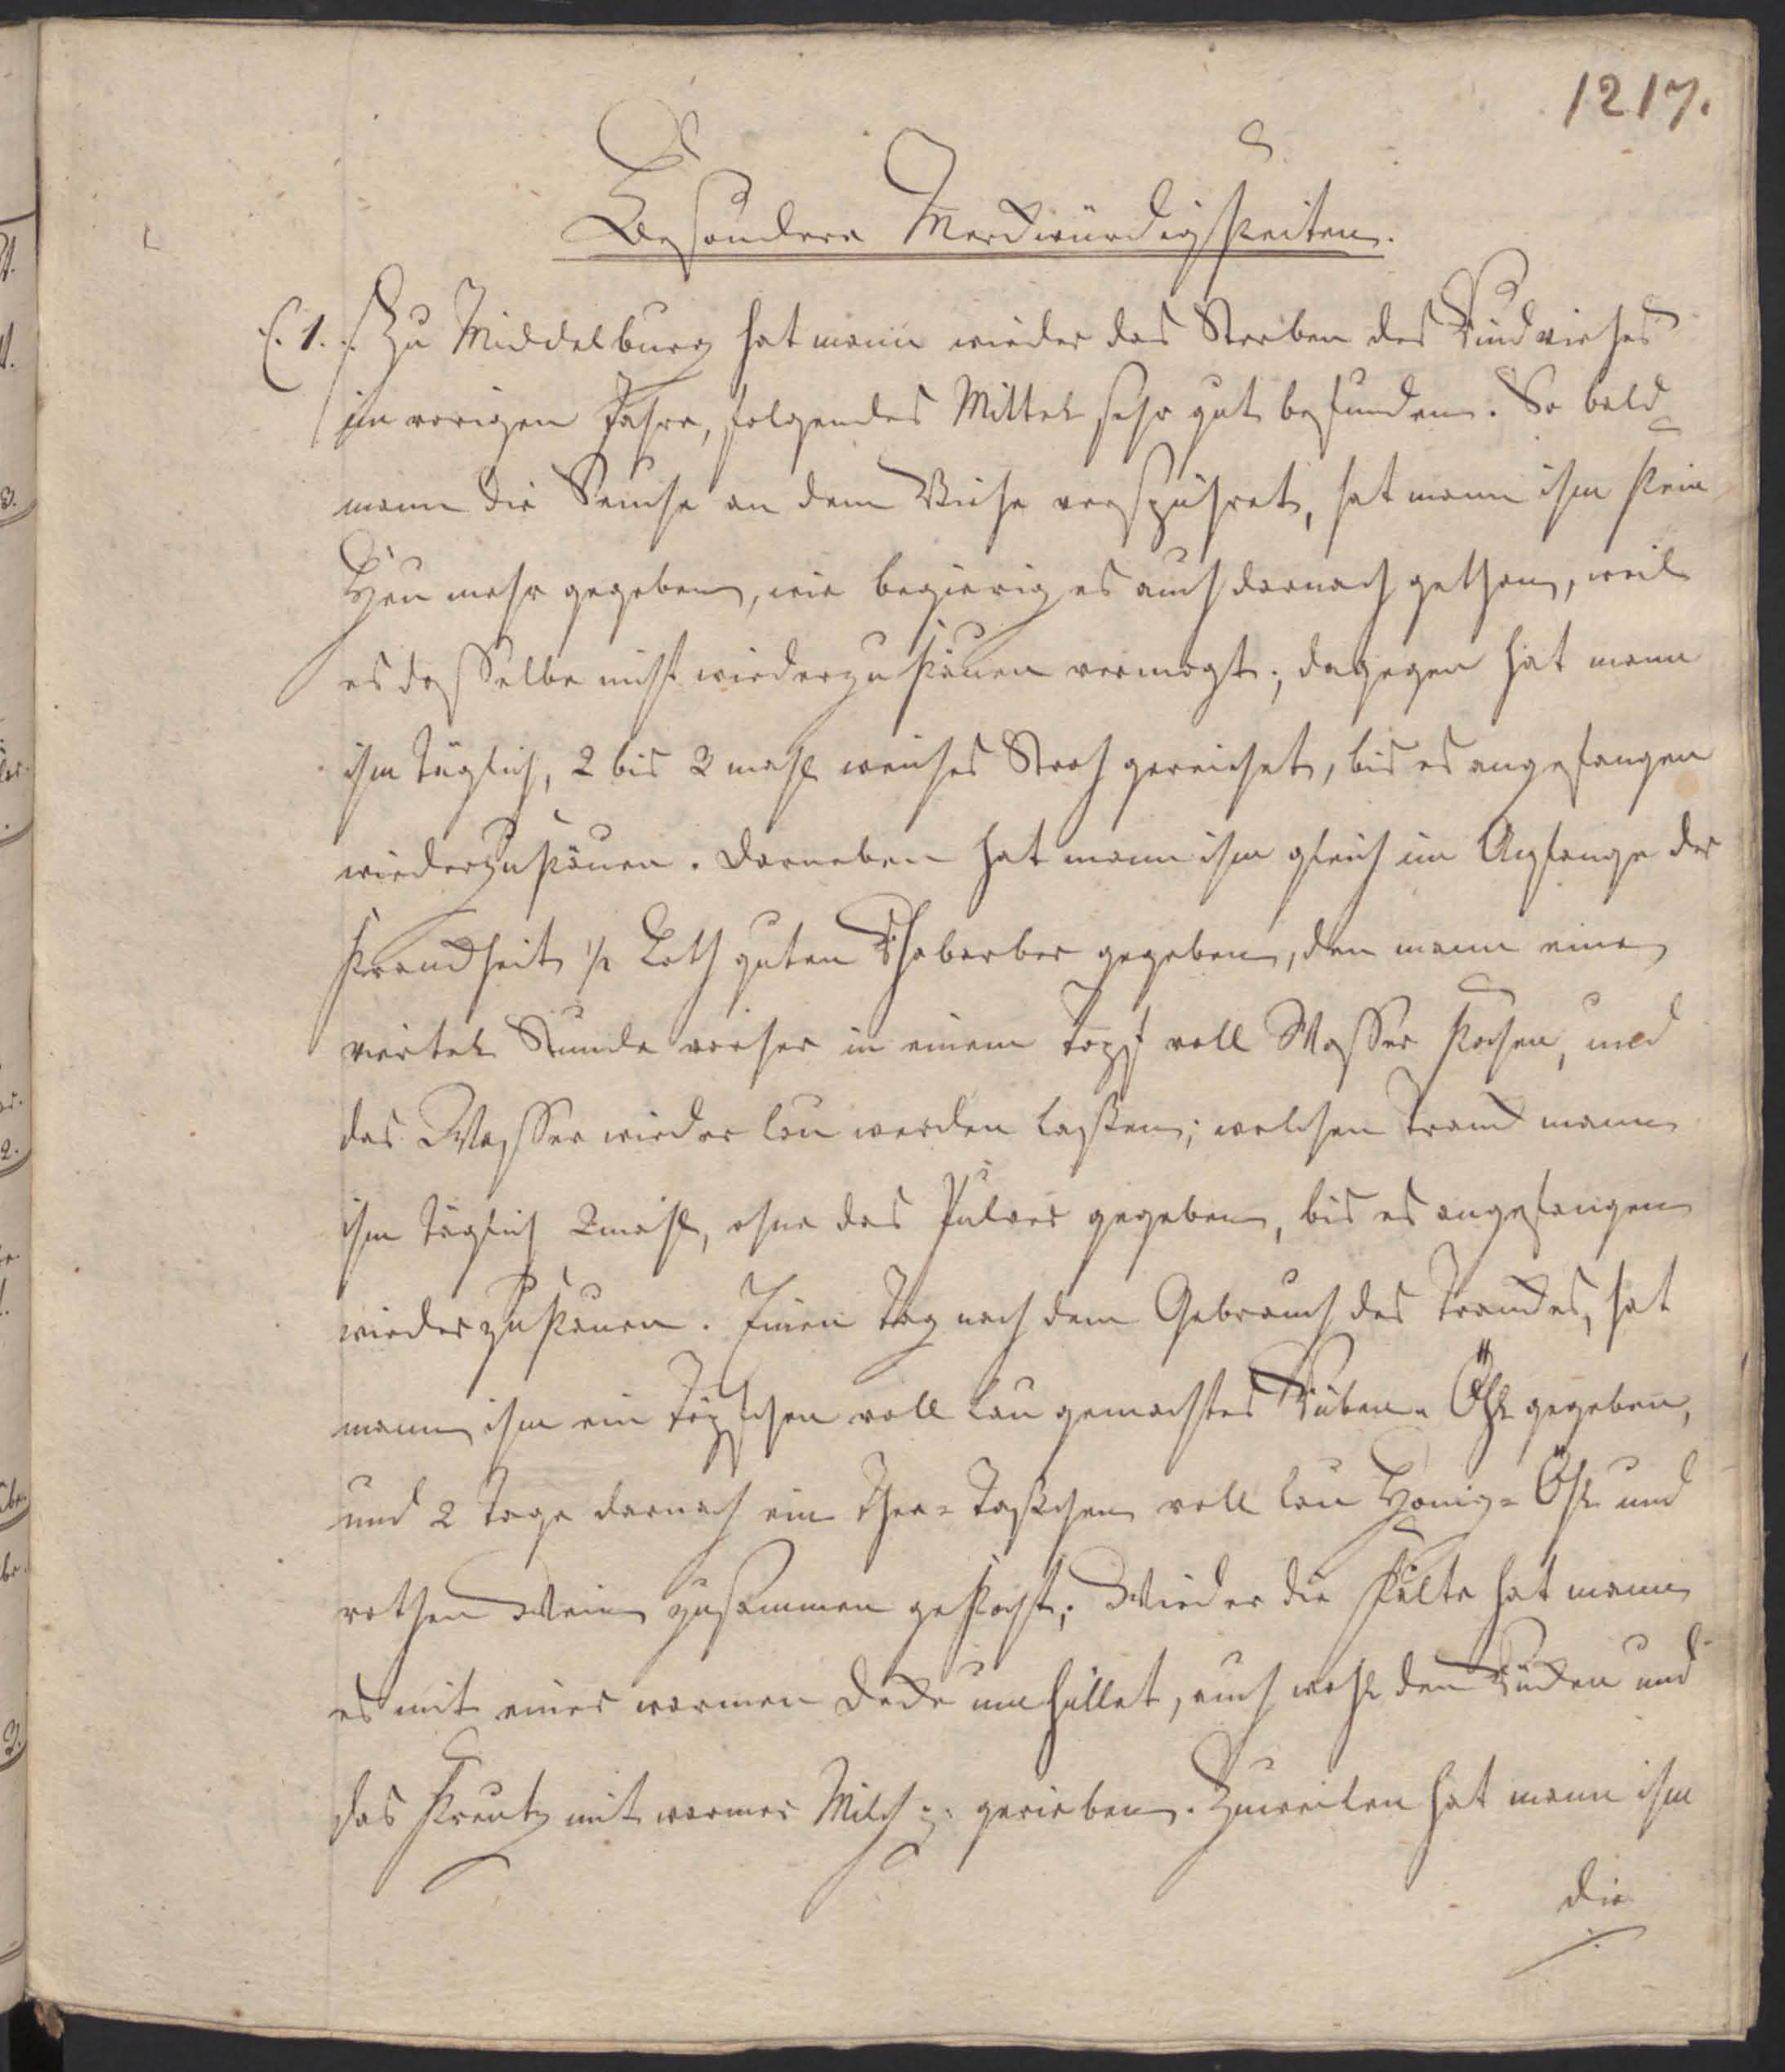 1217.
Besondere Merckwürdigkeiten.
(: 1. :) Zu Middelburg hat mann wieder das Sterben des Rindviehes
im vorigen Jahre, folgendes Mittel sehr gut befunden. So bald
mann die Seuche an dem Viehe verspühret, hat mann ihm kein
Heu mehr gegeben, wie begierig es auch darnach gethan, weil
es dasselbe nicht wiederzukäuen vermogt; dagegen hat mann
ihm täglich, 2 bis 3 mahl weiches Stroh gereichet, bis es angefangen
wiederzukäuen. Darneben hat mann ihm gleich im Anfange der
Kranckheit ½ Loth guten Rhabarber gegeben, den mann eine
viertel Stunde vorher in einem Topf voll Wasser kochen, und
das Wasser wieder lau werden laßen; welchen Tranck mann
ihm täglich 2mahl, ohne das Pulver gegeben, bis es angefangen
wiederzukäuen. Einen Tag nach dem Gebrauch des Tranckes, hat
mann ihm ein Töpfchen voll lau gemachtes Rüben-Öhl gegeben,
und 2 Tage darnach ein Thee-Taßchen voll lau Honig-Öhl und
rothen Wein zusammen gekocht; Wieder die Kälte hat mann
es mit einer warmen Decke umhüllet, auch wohl den Rücken und
das Kreutz mit warmer Milch gerieben. Zuweilen hat mann ihm
die